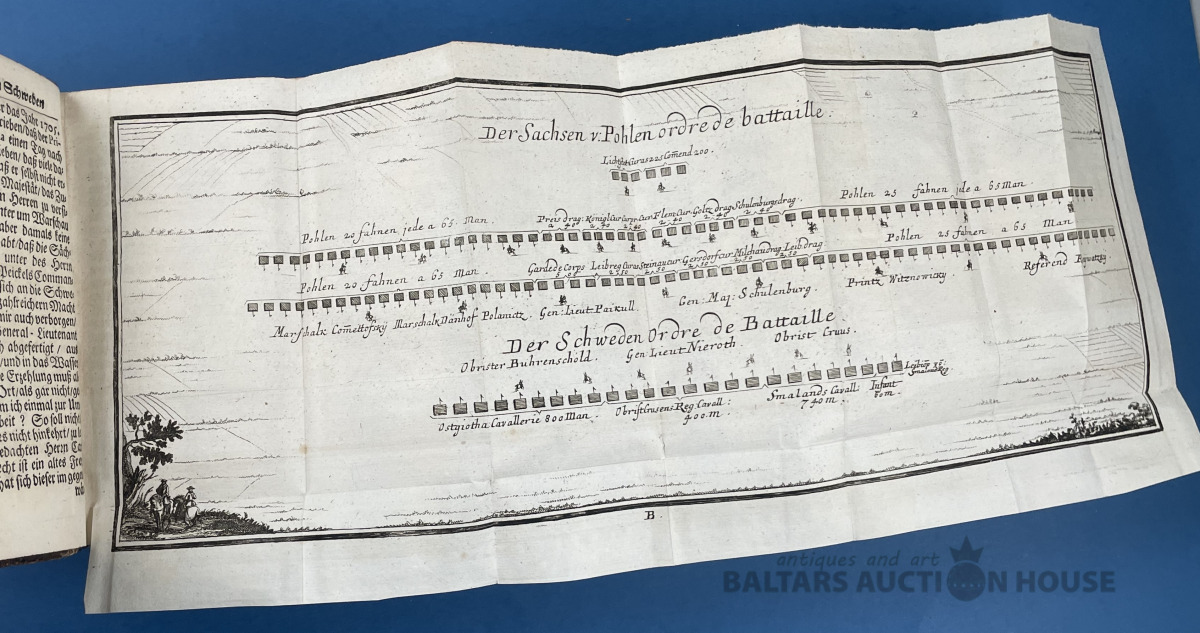 Schweden
das Jahr 1705.
rieben/daß der Pri-
einen Tag nach
eben/daß viele da-
aß er selbst nicht er-
Majestät/das Zu-
n Herren zu versi-
nter um Warschau
aber damals keine
abt/daß die Säch-
unter des Herrn
Comman-
sich an die Schwe-
zahlreichern Macht
mir auch verborgen/
General-Lieutenant
h abgefertigt/ auf
/und in das Wasser
e Erzehlung muß al-
Ort/als gar nicht/ge-
m ich einmal zur Um-
beit? So soll nicht/
es nicht hinkehrt/
gedachten Herrn
echt ist ein altes
hat sich dieser im gegen
Der Sachsen v. Pohlen ordre de battaille.
2
Comend 200.
Pohlen 25 fahnen jede a 65 Man
Pohlen 20 fahnen jede a 65. Man.
Preis drag. Königl Cur Corps Cur Flem Cur Goltz drag Schulenburgs drag.
Pohlen 25 fahnen a 65 Man
Pohlen 20 fahnen a 65 Man.
Garde de Corps Leibreg Curas Steinau cur Gersdorf cur Milchau drag Leib drag
Marschalk Comettofsky Marschalk Dänhof Polanitz. Gen: Lieut Paikull. Gen: Maj: Schulenburg. Printz Witznowizky Referend
Der Schweden Ordre de Battaille.
Obrister Buhrenschöld. Gen Lieut Nieroth. Obrist Cruus.
Ostgiotha Cavallerie 800 Man. Obrist Crusens Reg. Cavall: 400. m. Smalands Cavall: 740 m. Infant 60 m.
B.
antiques and art
BALTARS AUCTION HOUSE